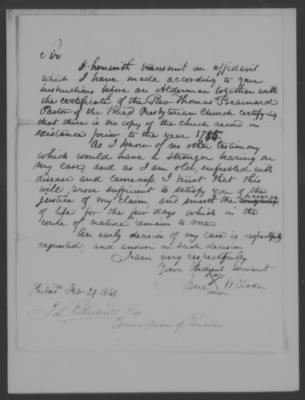 Sir
I herewith transmit an affidavit
which I have made according to your
instructions before an Alderman together with
the certificate of the Rev Thomas Brainard
Pastor of the Third Presbyterian Church certifying
that there is no copy of the church record in
existance prior to the year 1785.
As I know of no other testimony
which would have a stronger bearing on
my case; and as I am old, enfeebled with
disease and can I trust that this
will prove sufficient to satisfy you of the
justice of my claim, and smooth the
of life for the few days which in the
course of nature remain to me.
An early decision of my case is respectfully
requested, and answer on such decision
I am very respectfully
Your Obedient Servant
Wilson
Philada Feb 29 1841
J L Edwards Esq
Commissioner of Pensions